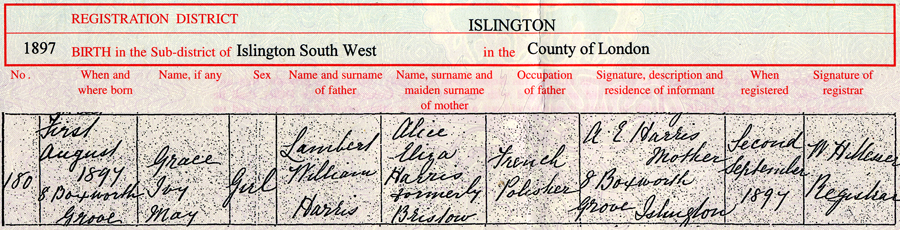 REGISTRATION DISTRICT ISLINGTON
1897 BIRTH in the Sub-district of Islington South West in the County of London
No. When and where born Name, if any Sex Name and surname of father Name, surname and maiden surname of mother Occupation of father Signature, description and residence of informant When registered Signature of registrar
180
First
August
1897
8 Boxworth
Grove
Grace
Ivy
May
Girl
Lambert
William
Harris
Alice
Eliza
Harris
formerly
Bristow
French
Polisher
A E Harris
Mother
8 Boxworth
Grove Islington
Second
September
1897
W.
Registrar